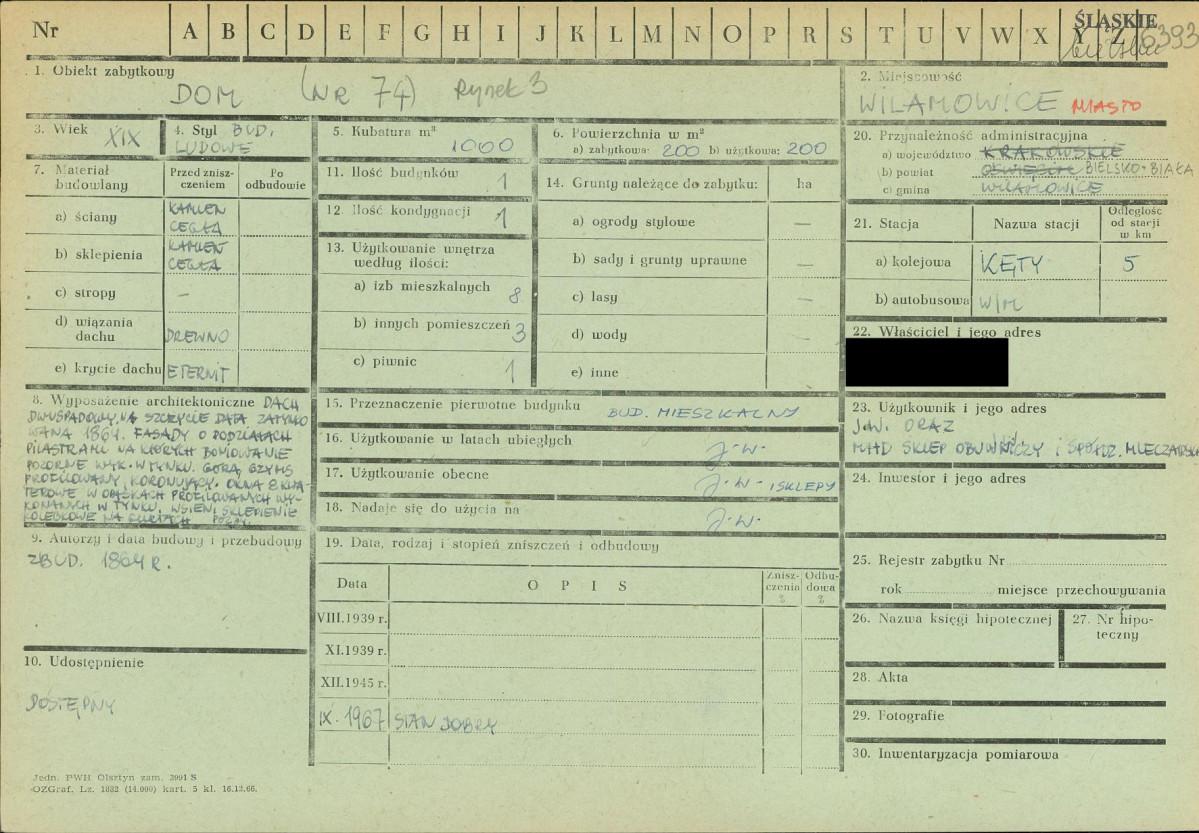 Nr A B C D E F G H I J K L M N O P R S T U V W X Y Z ŚLĄSKIE
6393
1. Obiekt zabytkowy
DOM (NR 74) Rynek 3
2. Miejscowość
WILAMOWICE MIASTO
3. Wiek XIX
4. Styl BUD.
LUDOWE
5. Kubatura m³
1000
6. Powierzchnia w m²
a) zabytkowa: 200 b) użytkowa: 200
7. Materiał budowlany
Przed zniszczeniem
Po odbudowie
a) ściany KAMIEŃ
CEGŁA
b) sklepienia KAMIEŃ
CEGŁA
c) stropy –
d) wiązania
dachu DREWNO
e) krycie dachu ETERNIT
8. Wyposażenie architektoniczne DACH
DWUSPADOWY, NA SZCZYCIE DATA ZATYNKO
WANA 1864. FASADY O PODZIAŁACH
PILASTRAMI NA KTÓRYCH BONIOWANIE
POZORNE WYK. W TYNKU. GÓRĄ GZYMS
PROFILOWANY, KORONUJĄCY. OKNA
W OPASKACH PROFILOWANYCH WY-
KONANYCH W TYNKU. W SIENI SKLEPIENIE
KOLEBKOWE NA GURTACH.
9. Autorzy i data budowy i przebudowy
ZBUD. 1864 R.
10. Udostępnienie
DOSTĘPNY
11. Ilość budynków 1
12. Ilość kondygnacji 1
13. Użytkowanie wnętrza
według ilości:
a) izb mieszkalnych 8
b) innych pomieszczeń 3
c) piwnic 1
14. Grunty należące do zabytku: ha
a) ogrody stylowe –
b) sady i grunty uprawne –
c) lasy –
d) wody –
e) inne
15. Przeznaczenie pierwotne budynku BUD. MIESZKALNY
16. Użytkowanie w latach ubiegłych J.W.
17. Użytkowanie obecne J.W. I SKLEPY
18. Nadaje się do użycia na J.W.
19. Data, rodzaj i stopień zniszczeń i odbudowy
Data OPIS Zniszczenia % Odbudowa %
VIII.1939 r.
XI.1939 r.
XII.1945 r.
IX. 1967 STAN DOBRY
20. Przynależność administracyjna
a) województwo KRAKOWSKIE
b) powiat OŚWIĘCIM BIELSKO-BIAŁA
c) gmina WILAMOWICE
21. Stacja Nazwa stacji Odległość od stacji w km
a) kolejowa KĘTY 5
b) autobusowa W/M
22. Właściciel i jego adres
23. Użytkownik i jego adres
J.W. ORAZ
MHD SKLEP OBUWNICZY I SPÓŁDZ. MLECZARSKA
24. Inwestor i jego adres
25. Rejestr zabytku Nr
rok miejsce przechowywania
26. Nazwa księgi hipotecznej
27. Nr hipoteczny
28. Akta
29. Fotografie
30. Inwentaryzacja pomiarowa
Jedn. PWH Olsztyn zam. 3991 S
OZGraf. Lz. 1832 (14.000) kart. 5 kl. 16.12.66.